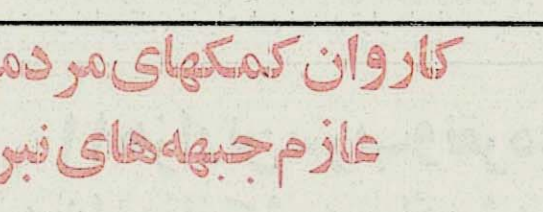 کاروان کمکهای مردم
عازم جبهه‌های نبر